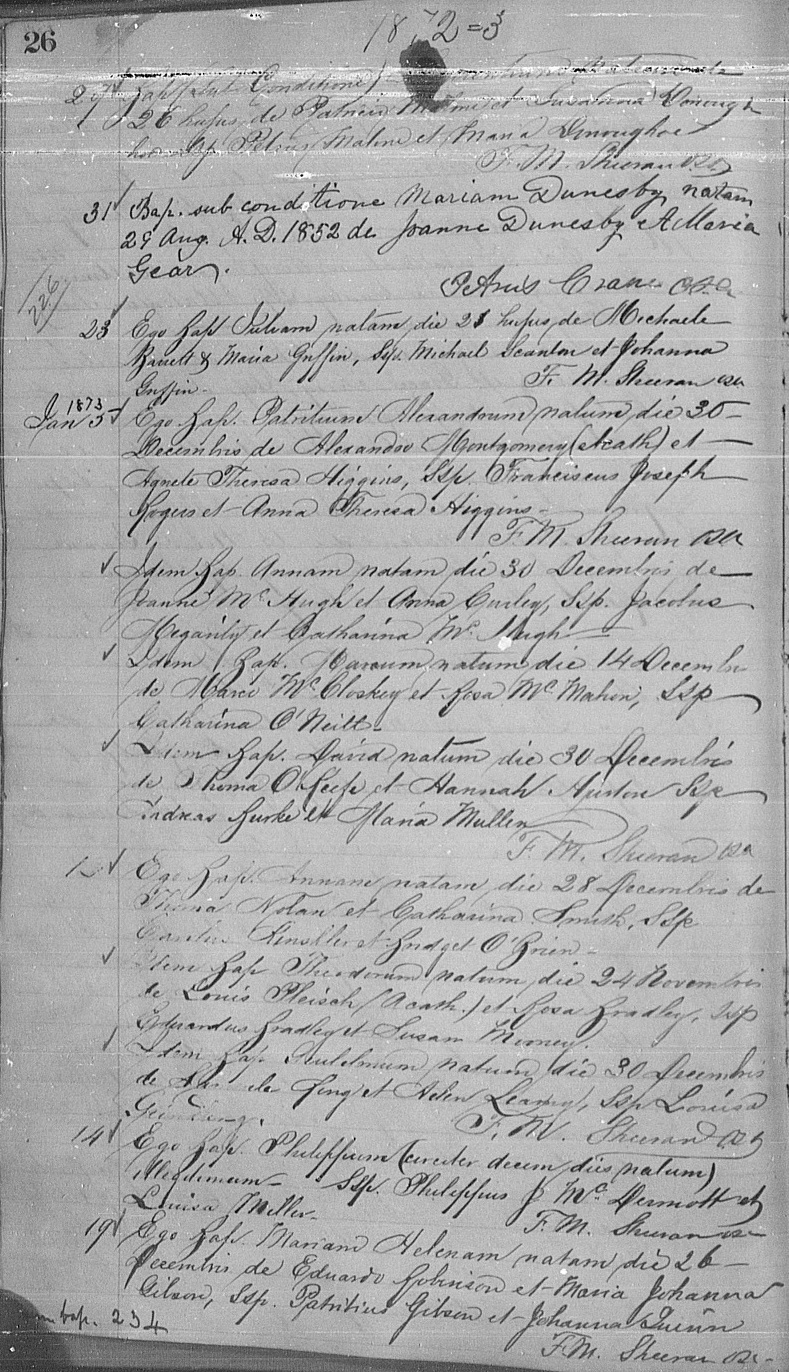 26
1872=3
29 Bap (sub Conditione)
26 hujus, de Patricio et Susanna Donough
hoe Ssp Petrus Malone et Maria Donoughoe
F. M. Sheeran OSA
31 Bap. sub conditione Mariam Dunesby, natam
29 Aug. A. D. 1852 de Joanne Dunesby et Maria
Gear.
226
Petrus Crane OSA
23 Ego Bap Juliam natam die 21 hujus, de Michaele
Barrett & Maria Griffin, Ssp. Michael Scanlon et Johanna
Griffin -
F. M. Sheeran OSA
1873
Jan 5 Ego bap. Patritium Alexandrum natum die 30 -
Decembris de Alexandro Montgomery (Acath) et -
Agnete Theresa Higgins, Ssp. Franciscus Joseph
Rogers et Anna Theresa Higgins -
F. M. Sheeran OSA
Idem bap. Annam natam die 30 Decembris de
Joanne Mc Hugh et Anna Curley, Ssp. Jacobus
Megarity et Catharina Mc Hugh -
Idem bap. Marcum natum die 14 Decembris
de Marco Mc Closkey et Rosa Mc Mahon, Ssp
Catharina O'Neill -
Idem bap. David natum die 30 Decembris
de Thoma O'Keefe et Hannah Ssp
Andreas Burke et Maria Mullen
F. M. Sheeran OSA
12 Ego bap. Annam natam, die 28 Decembris de
Thoma Nolan et Catharina Smith, Ssp
et Bridget O'Brien -
Idem bap Theodorum natum, die 24 Novembris
de Louis Pleisch (Acath.) et Rosa Bradley, Ssp
Eduardus Bradley et Susan Mooney.
Idem bap. Gulielmum natum die 30 Decembris
de King et Helen Leamy, Ssp Louisa
F. M. Sheeran OSA
14 Ego bap. Philippum (circiter decem dies natum)
Illegitimum - Ssp. Philippus J Mc Dermott et
Louisa Miller -
F. M. Sheeran OSA
19 Ego bap. Mariam Helenam natam die 26 -
Decembris de Eduardo Johnson et Maria Johanna
Gibson, Ssp. Patritius Gibson et Johanna Quinn
F. M. Sheeran OSA
bap. 234